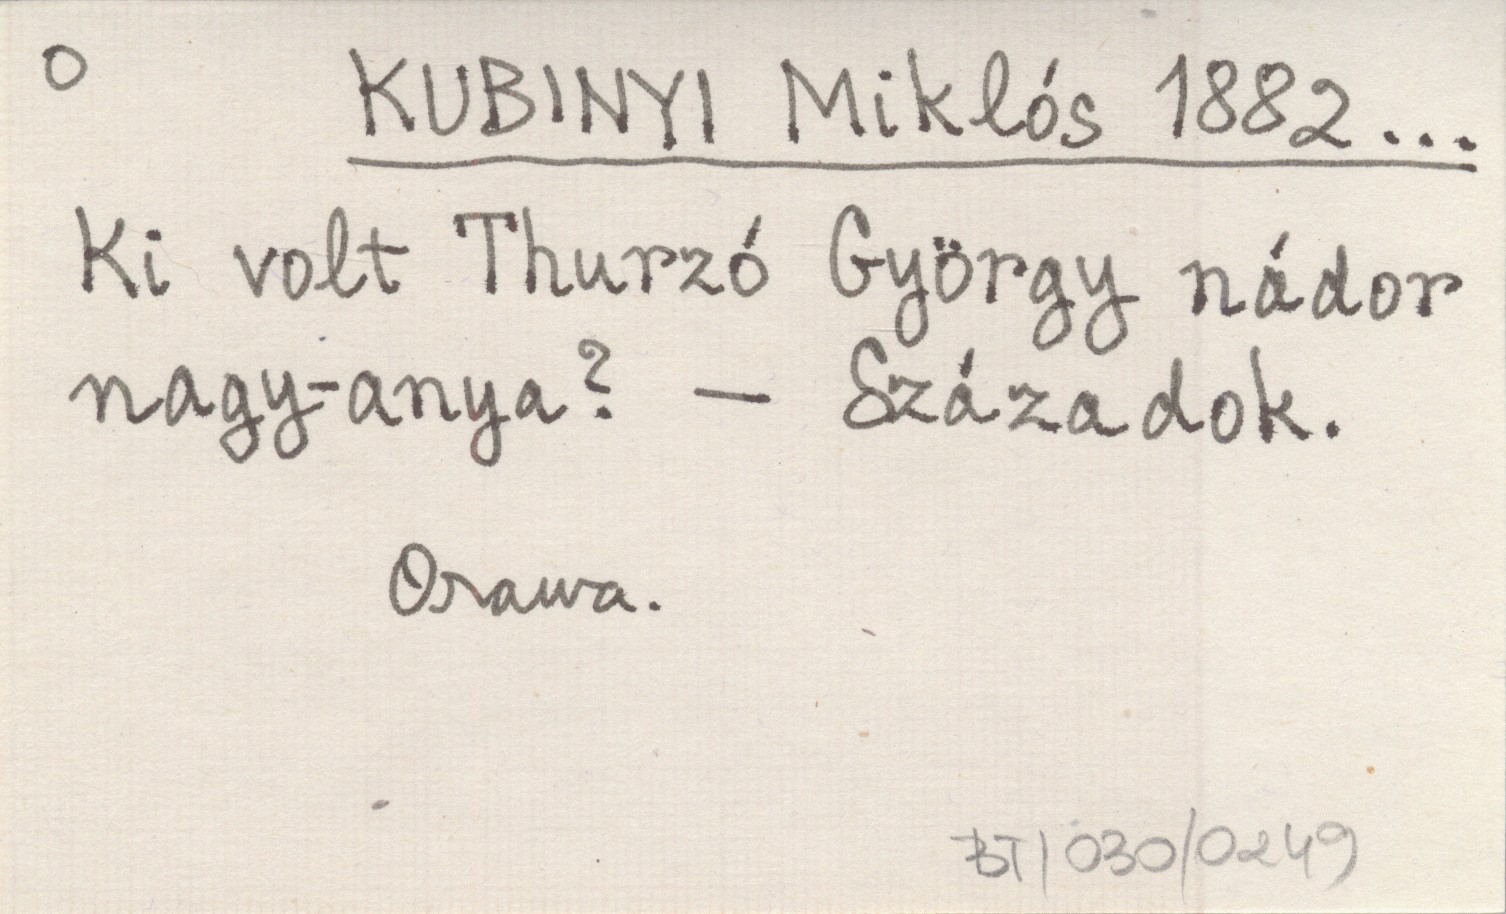 O KUBINYI Miklós 1882...
Ki volt Thurzó György nádor
nagy-anya? — Századok.
Orawa.
BT/030/0249